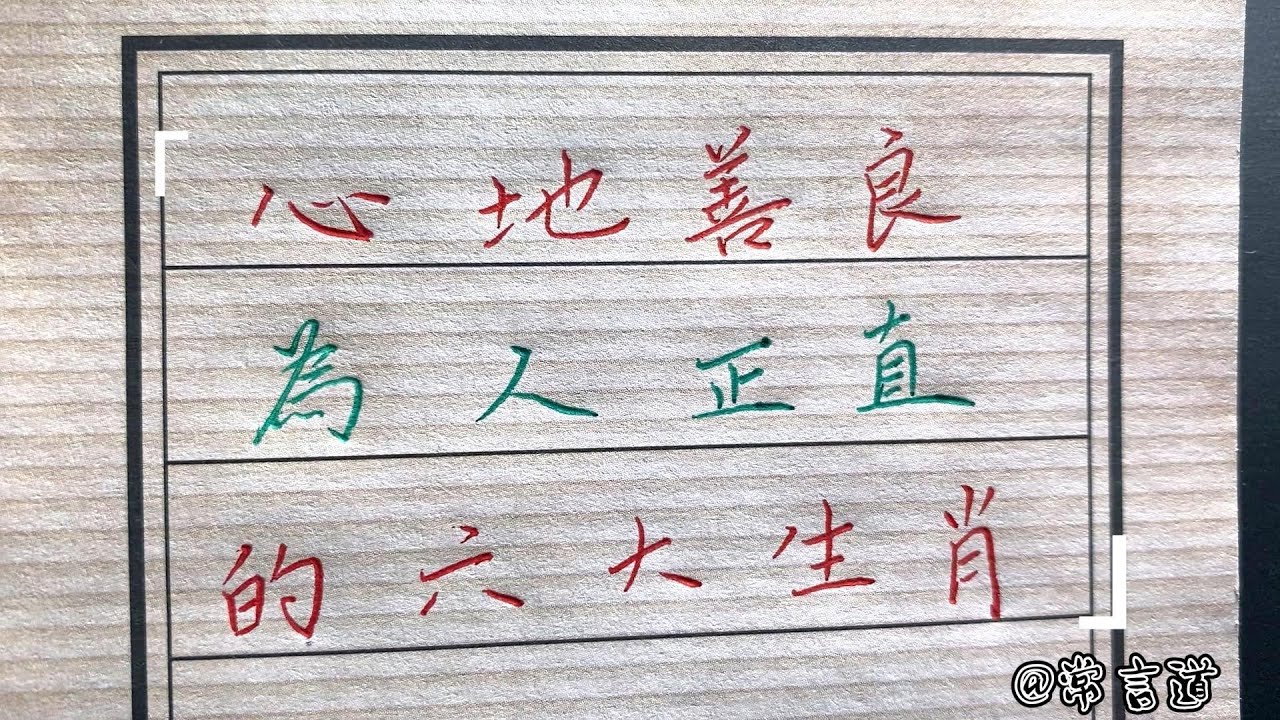 心地善良
為人正直
的六大生肖
@常言道